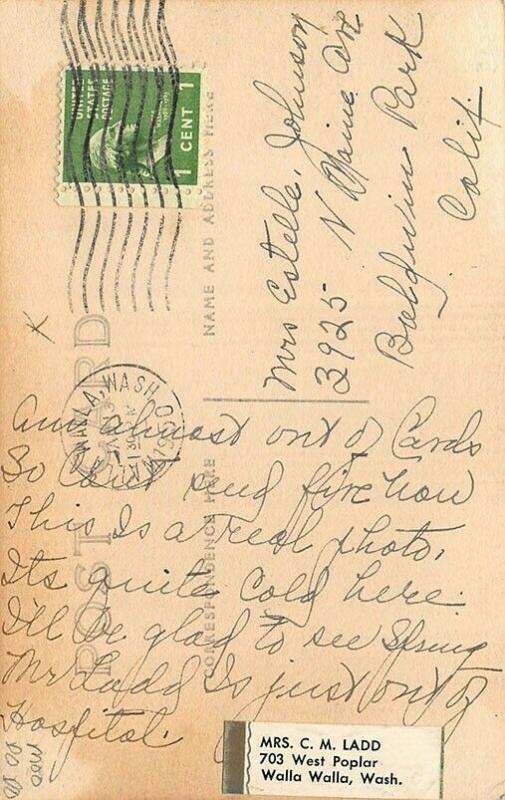 UNITED
STATES
POSTAGE
1 CENT 1
WALLA, WASH.
1950
POST CARD
NAME AND ADDRESS HERE
CORRESPONDENCE HERE
Mrs Estelle Johnson
3925 N Maine Ave
Baldwin Park
Calif.
x
am almost out of Cards
So Can't send five now
This Is a real photo.
Its quite Cold here.
I'll be glad to see Spring
Mr Ladd Is just out of
Hospital.
now
MRS. C. M. LADD
703 West Poplar
Walla Walla, Wash.